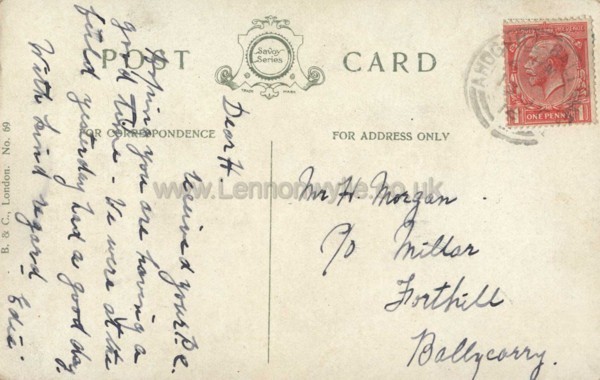 POST CARD
Savoy
Series
TRADE MARK
FOR CORRESPONDENCE
FOR ADDRESS ONLY
ONE PENNY
B. & C., London. No. 69
www.Lennonwylie.co.uk
Dear H.
Received your P.C.
Hoping you are having a
good time - We were at the
field yesterday had a good day.
With kind regard
Edie
Mr H. Morgan
c/o Millar
Forthill
Ballycarry.